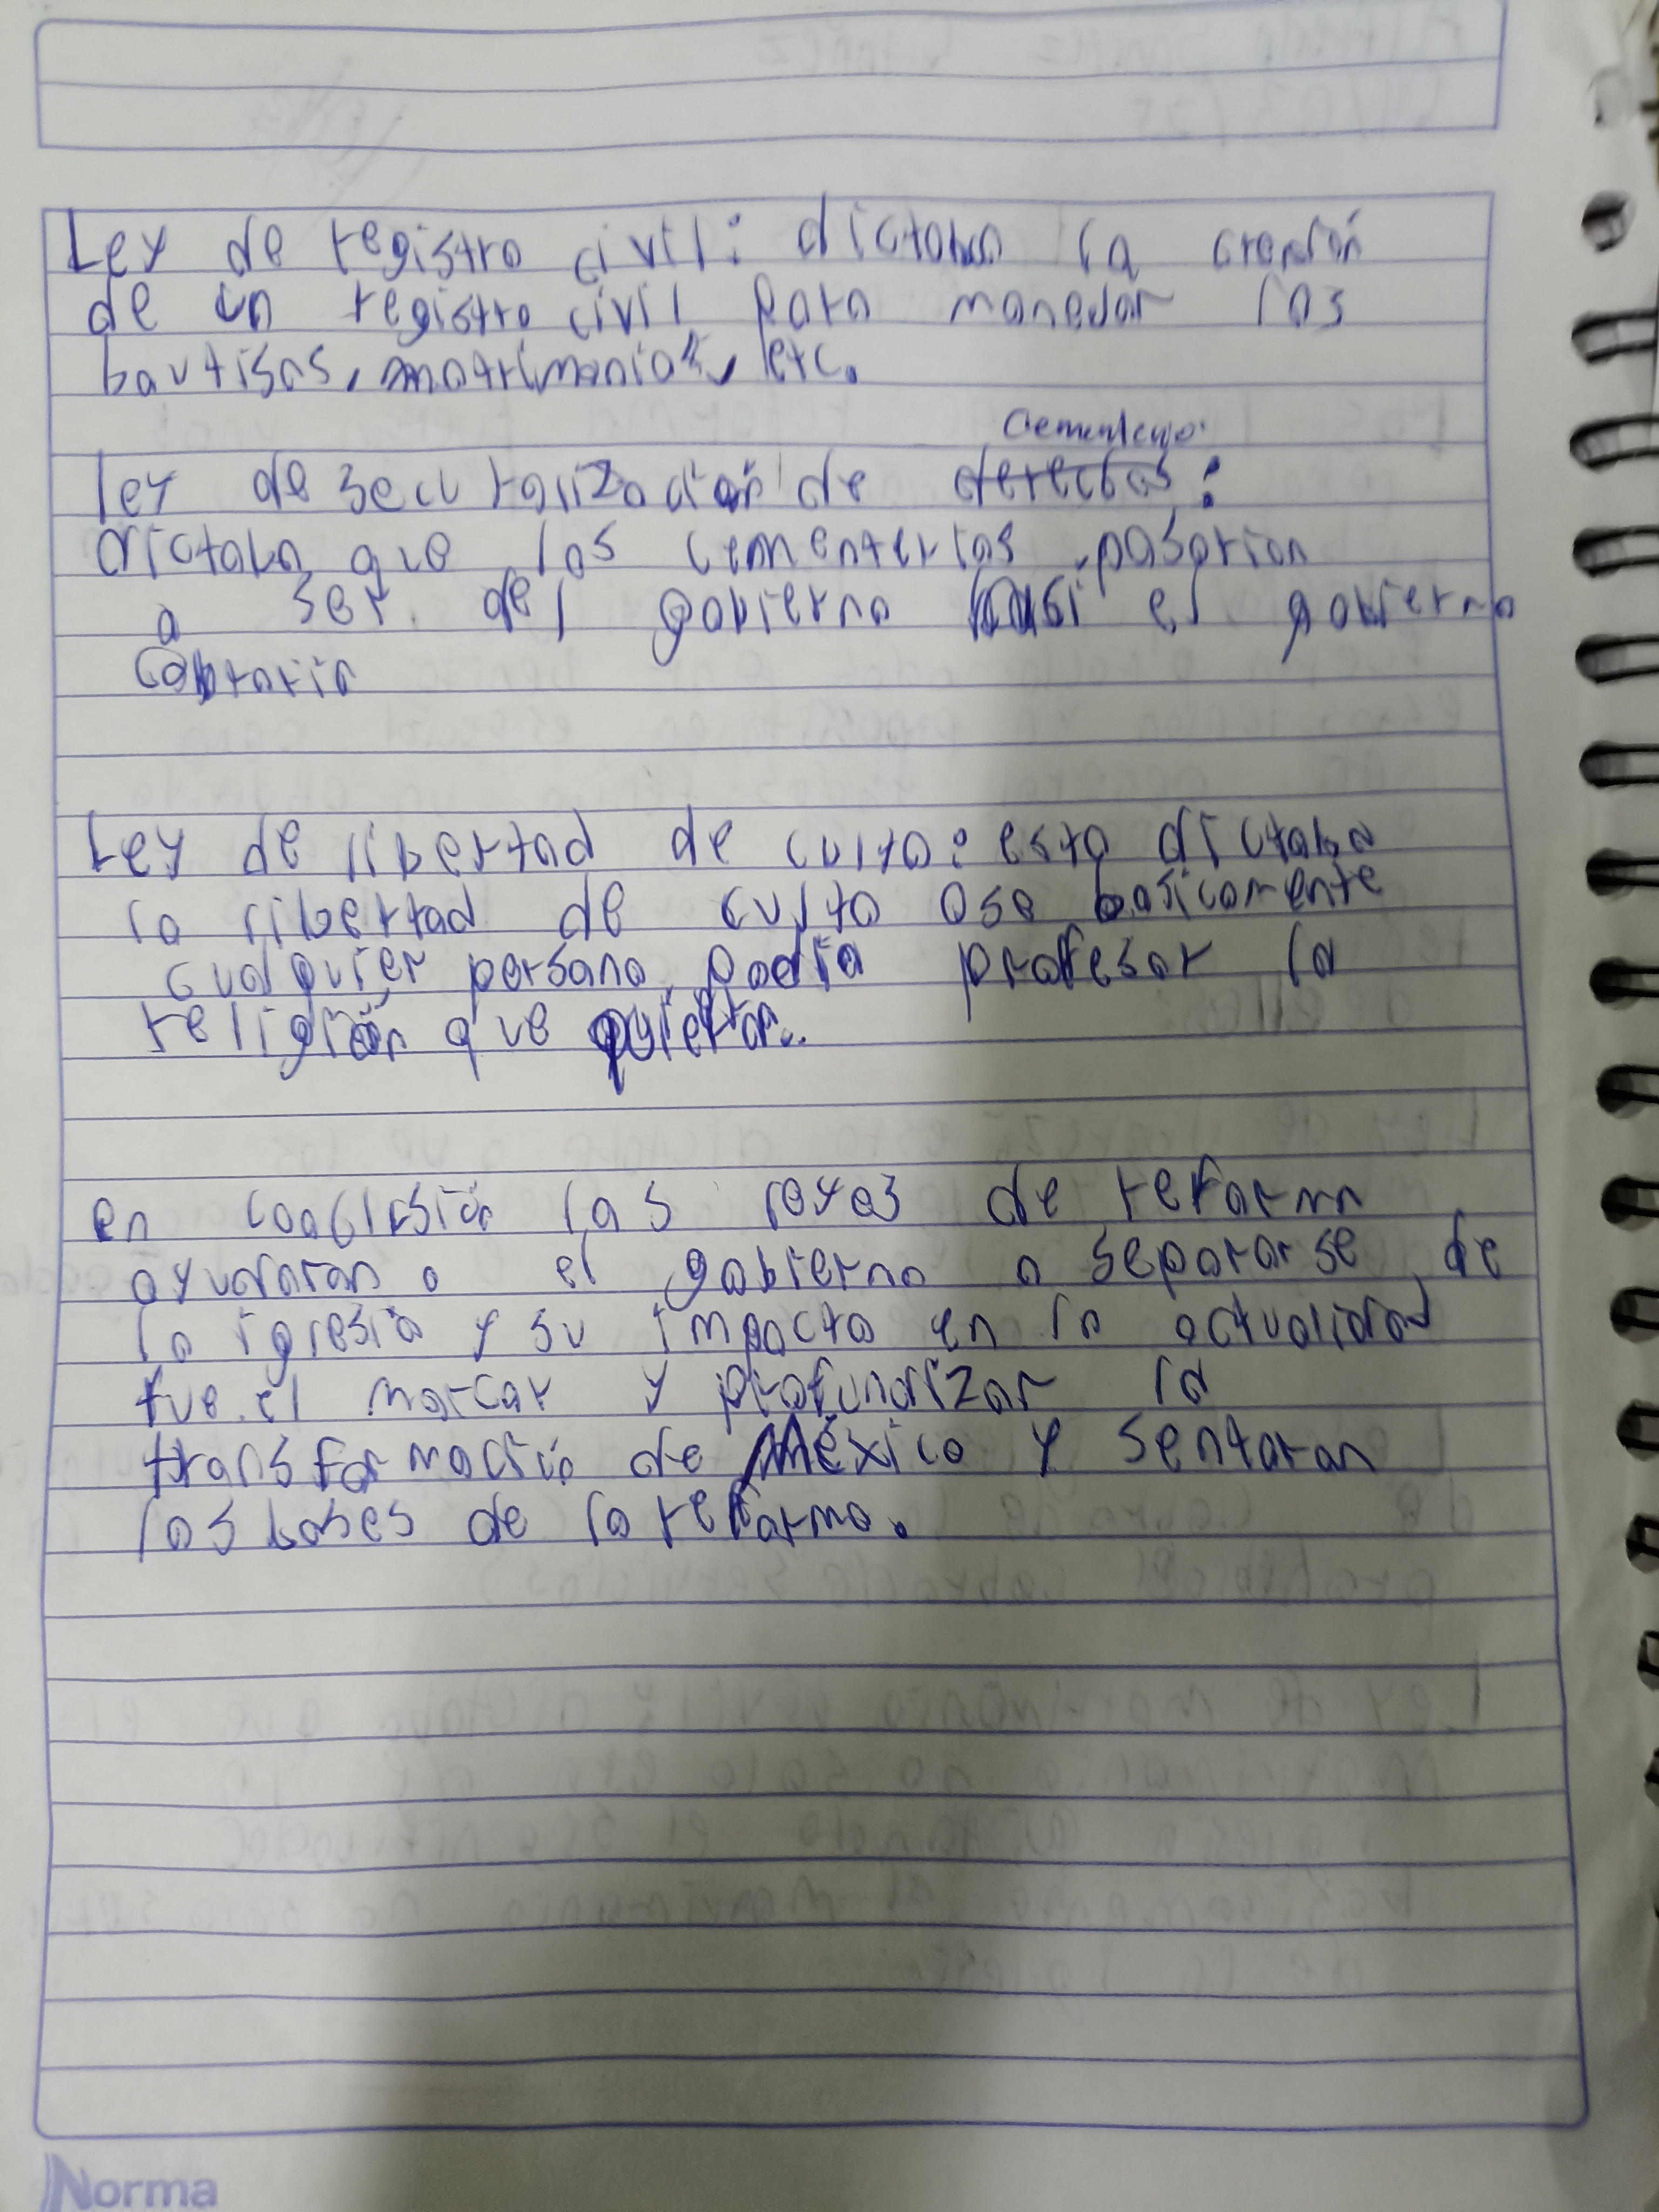 Ley de registro civil: dictaba la creación
de un registro civil para manejar los
bautisos, matrimonios, etc.
Cementerio
ley de secularización de derechos:
dictaba que los cementerios pasarian
a ser del gobierno asi el gobierno
cobraria
Ley de libertad de culto: esta dictaba
la libertad de culto ose basicamente
cualquier persona podia profesar la
religión que quiera.
en conclusión las leyes de reforma
ayudaron a el gobierno a separarse de
la iglesia y su impacto en la actualidad
fue el marcar y profundizar la
transformación de México y sentaron
las bases de la reforma.
Norma